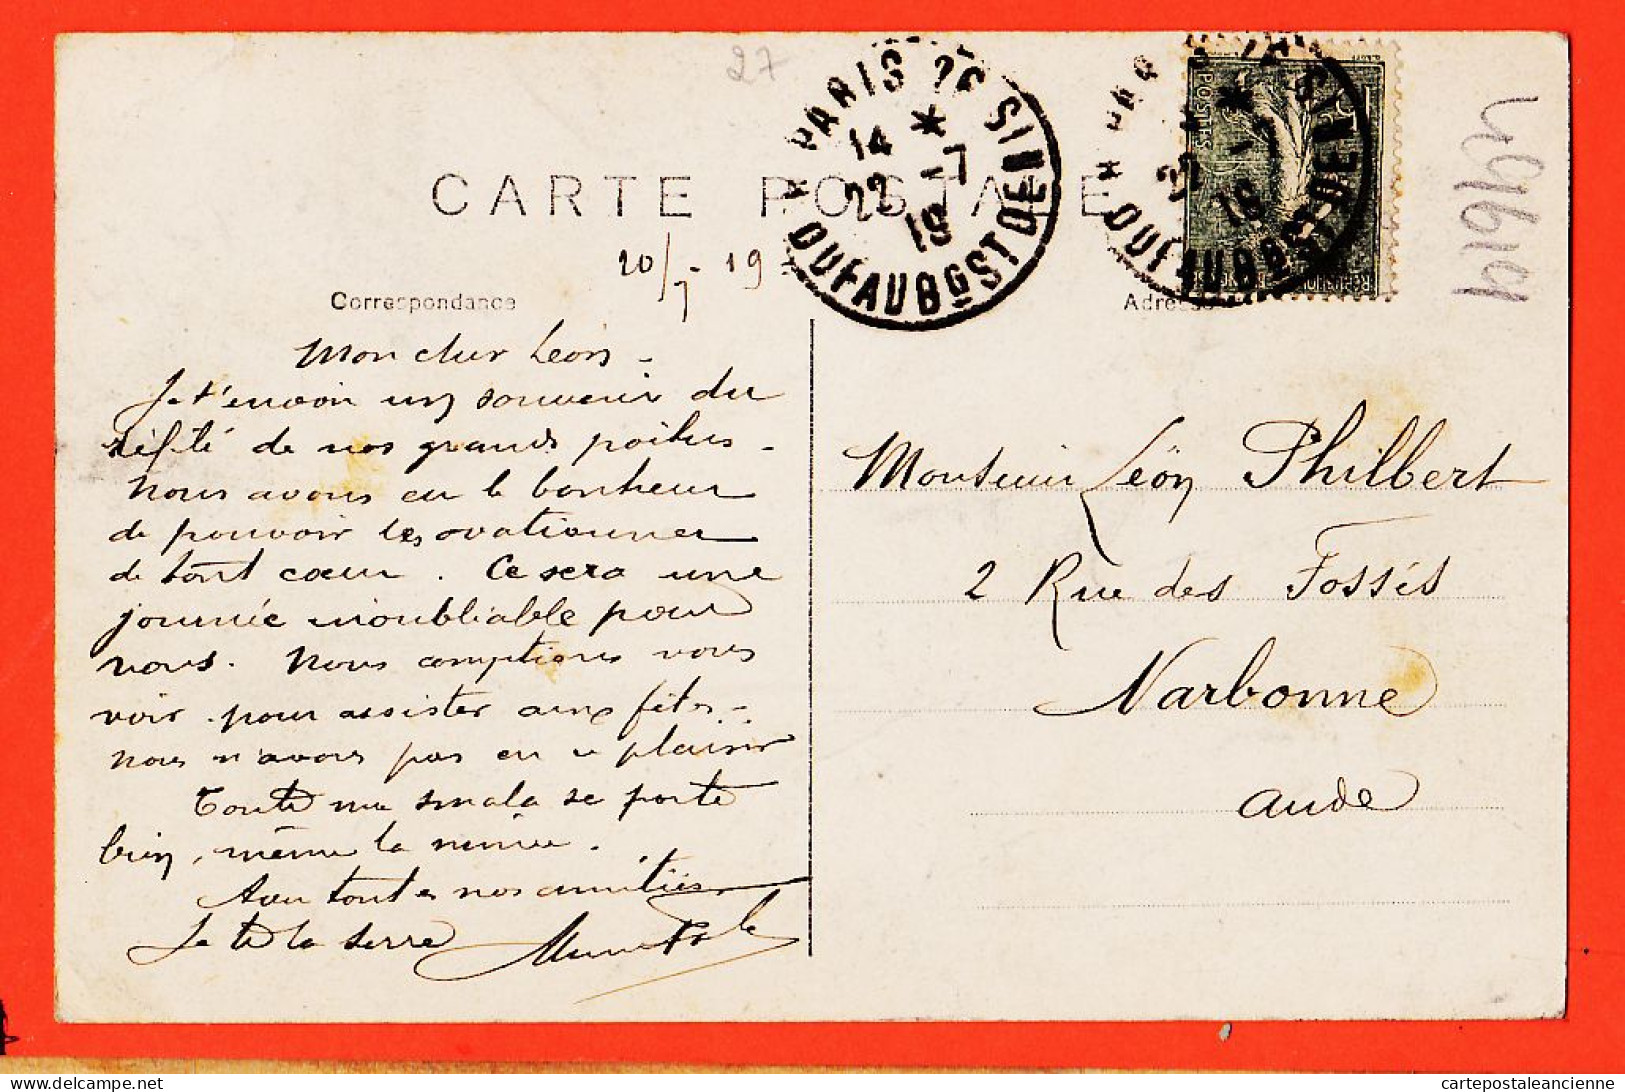 27
CARTE POSTALE
PARIS 26
14 *
22 -7
19
R. DU FAUBG ST DENIS
POSTES
49614
20/7-19
Correspondance
Adresse
Mon cher Léon -
Je t'envoi un souvenir du
défilé de nos grands poilus -
Nous avons eu le bonheur
de pouvoir les ovationner
de tout cœur. Ce sera une
journée inoubliable pour
nous. Nous comptions vous
voir pour assister aux fêtes -
nous n'avons pas eu ce plaisir
Toute ma smala se porte
bien, même la mémée.
Avec toutes nos amitiés
Je te la serre
Monsieur Léon Philbert
2 Rue des Fossés
Narbonne
Aude
cartepostaleancienne